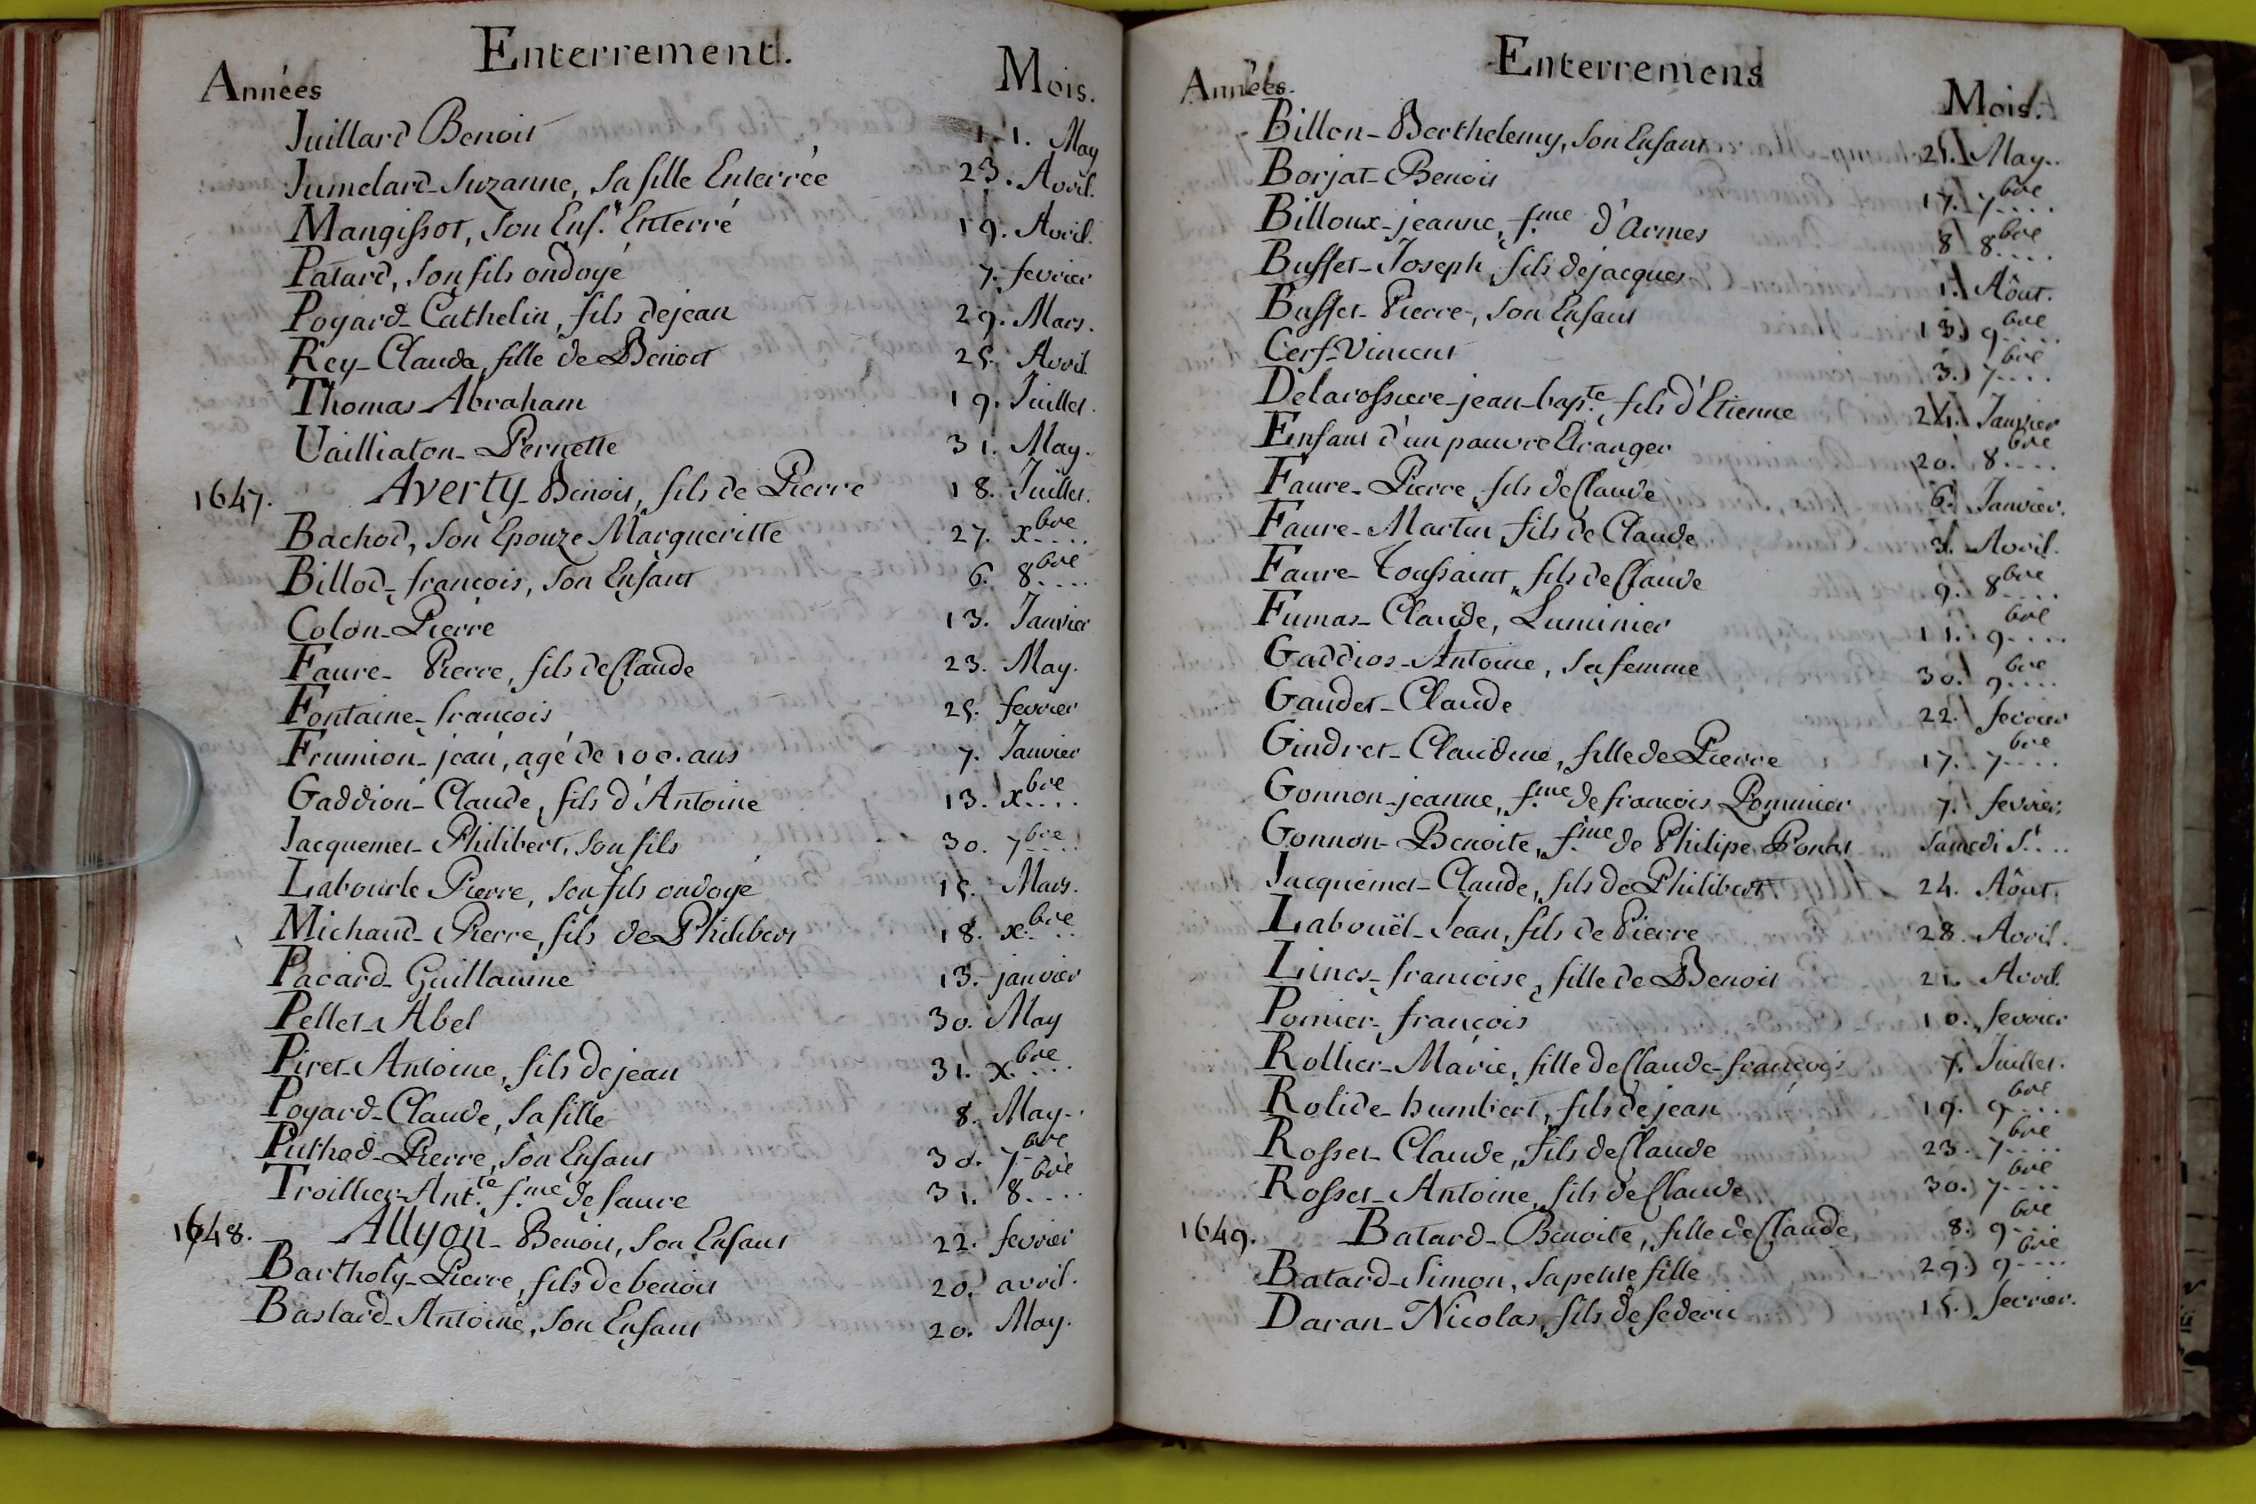 Enterrement.
Années Mois.
Juillard Benoit 11. May
Jumelard-Suzanne, Sa fille Enterrée 23. Avril.
Mangissot, Son Enf.t Enterré 19. Avril.
Patard, Son fils ondoyé 7. fevrier
Poyard-Cathelin, fils de jean 29. Mars.
Rey-Claude, fille de Benoit 25. Avril.
Thomas-Abraham 19. Juillet.
Vailliaton-Pernette 31. May.
1647. Averty-Benoit, fils de Pierre 18. Juillet.
Bachod, Son Epouze Margueritte 27. xbre....
Billod-françois, Son Enfant 6. 8bre....
Colon-Pierre 13. Janvier
Faure-Pierre, fils de Claude 23. May.
Fontaine-françois 25. fevrier
Frumion-jean, agé de 100. ans 7. Janvier
Gaddion-Claude, fils d'Antoine 13. xbre....
Jacquemet-Philibert, Son fils 30. 7bre....
Labourle Pierre, Son fils ondoyé 15. Mars.
Michaud-Pierre, fils de Philibert 18. xbre...
Pacard-Guillaume 13. janvier
Pellet-Abel 30. May
Piret-Antoine, fils de jean 31. xbre....
Poyard-Claude, Sa fille 8. May.
Puthod-Pierre, Son Enfant 30. 7bre
Troillier-Ant.te f.me de faure 31. 8bre....
1648. Allyon-Benoit, Son Enfant 22. fevrier
Bartholy-Pierre, fils de benoit 20. avril.
Bastard-Antoine, Son Enfant 20. May.
Enterremens
Années. Mois.
Billon-Berthelemy, Son Enfant 21. May..
Borjat-Benoit 17. 7bre....
Billoux-jeanne, f.me d'Armes 8. 8bre....
Buffet-Joseph, fils de jacques 1. Aôut.
Buffet-Pierre, Son Enfant 13. 9bre....
Cerf-Vincent 3. 7bre....
Delarossiere-jean-bap.te, fils d'Etienne 24. Janvier
Enfant d'un pauvre Etranger 20. 8bre....
Faure-Pierre, fils de Claude 6. Janvier.
Faure-Martin, fils de Claude 3. Avril.
Faure-Toussaint, fils de Claude 9. 8bre....
Fumas-Claude, Luminier 11. 9bre....
Gaddios-Antoine, Sa femme 30. 9bre....
Gaudet-Claude 22. fevrier
Gindret-Claudine, fille de Pierre 17. 7bre....
Gonnon-jeanne, f.me de françois Pommier 7. fevrier.
Gonnon-Benoite, f.me de Philipe Samedi S.t...
Jacquemet-Claude, fils de Philibert 24. Aôut.
Labouël-Jean, fils de Pierre 28. Avril.
Linos-françoise, fille de Benoit 21. Avril.
Pomier-françois 10. fevrier
Rollier-Marie, fille de Claude-françois 7. Juillet.
Rolide-humbert, fils de jean 19. 9bre....
Rosset-Claude, fils de Claude 23. 7bre....
Rosset-Antoine, fils de Claude 30. 7bre....
1649. Batard-Benoite, fille de Claude 8. 9bre...
Batard-Simon, sa petite fille 29. 9bre....
Daran-Nicolas, fils de federic 15. fevrier.